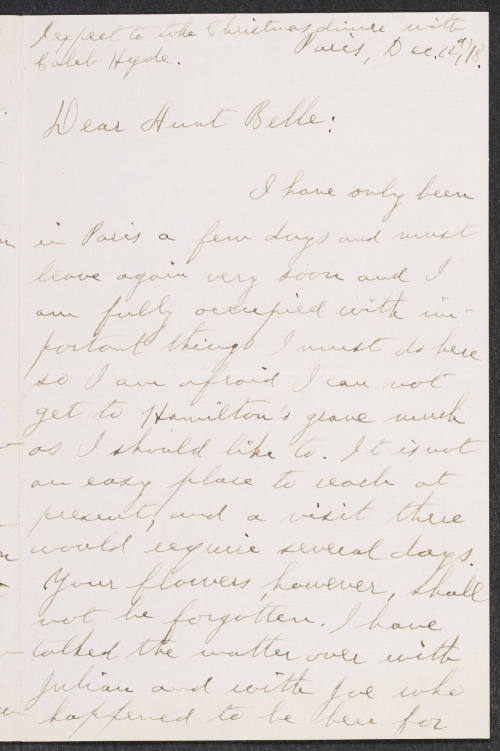 I expect to take Christmas dinner with
Caleb Hyde.
Paris, Dec. 22d, '18.
Dear Aunt Belle:
I have only been
in Paris a few days and must
leave again very soon and I
am fully occupied with im-
portant things I must do here
so I am afraid I can not
get to Hamilton's grave much
as I should like to. It is not
an easy place to reach at
present, and a visit there
would require several days.
Your flowers, however, shall
not be forgotten. I have
talked the matter over with
Julian and with Joe who
happened to be here for